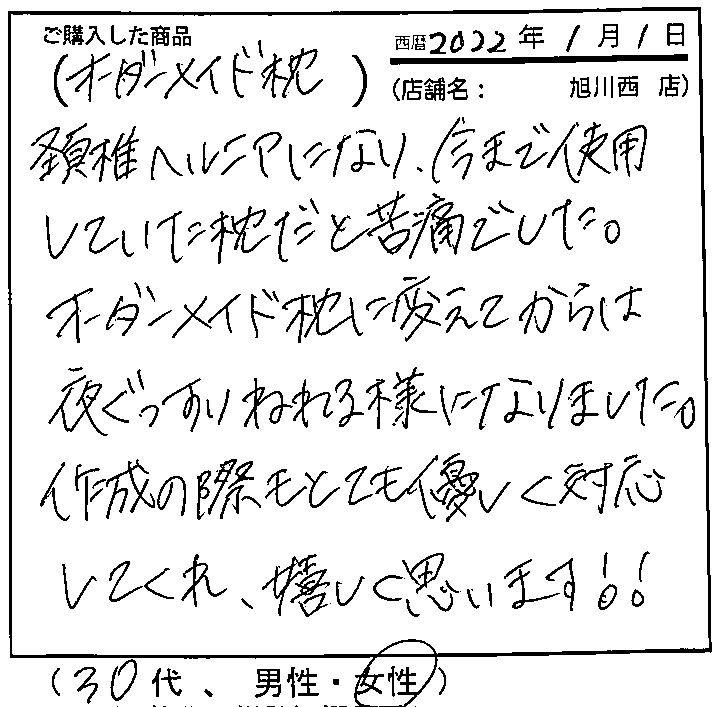 ご購入した商品
西暦2022年1月1日
(オーダーメイド枕)
(店舗名： 旭川西 店)
頚椎ヘルニアになり、今まで使用
していた枕だと苦痛でした。
オーダーメイド枕に変えてからは
夜ぐっすりねれる様になりました。
作成の際もとても優しく対応
してくれ、嬉しく思います!!
(30代、男性・女性)